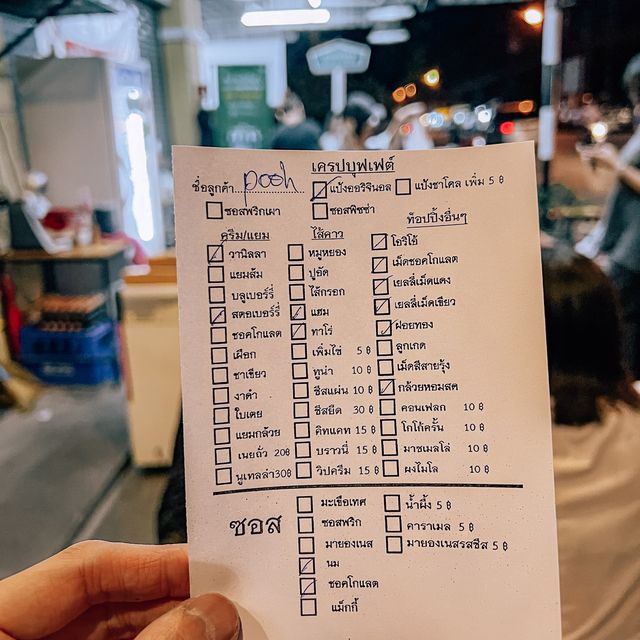 เครปบุฟเฟต์
ชื่อลูกค้า posh แป้งออริจินอล แป้งชาโคล เพิ่ม 5 ฿
ซอสพริกเผา ซอสพิซซ่า
ครีม/แยม ไส้คาว ท็อปปิ้งอื่นๆ
วานิลลา หมูหยอง โอริโอ้
แยมส้ม ปูอัด เม็ดช็อคโกแลต
บลูเบอร์รี่ ไส้กรอก เยลลี่เม็ดแดง
สตอเบอร์รี่ แฮม เยลลี่เม็ดเขียว
ชอคโกแลต ทาโร่ ฝอยทอง
เผือก เพิ่มไข่ 5 ฿ ลูกเกด
ชาเขียว ทูน่า 10 ฿ เม็ดสีสายรุ้ง
งาดำ ชีสแผ่น 10 ฿ กล้วยหอมสด
ใบเตย ชีสยืด 30 ฿ คอนเฟลก 10 ฿
แยมกล้วย คิทแคท 15 ฿ โกโก้ครั้น 10 ฿
เนยถั่ว 20฿ บราวนี่ 15 ฿ มาชเมลโล่ 10 ฿
นูเทลล่า30฿ วิปครีม 15 ฿ ผงไมโล 10 ฿
ซอส
มะเขือเทศ น้ำผึ้ง 5 ฿
ซอสพริก คาราเมล 5 ฿
มายองเนส มายองเนสรสชีส 5 ฿
นม
ชอคโกแลต
แม็กกี้